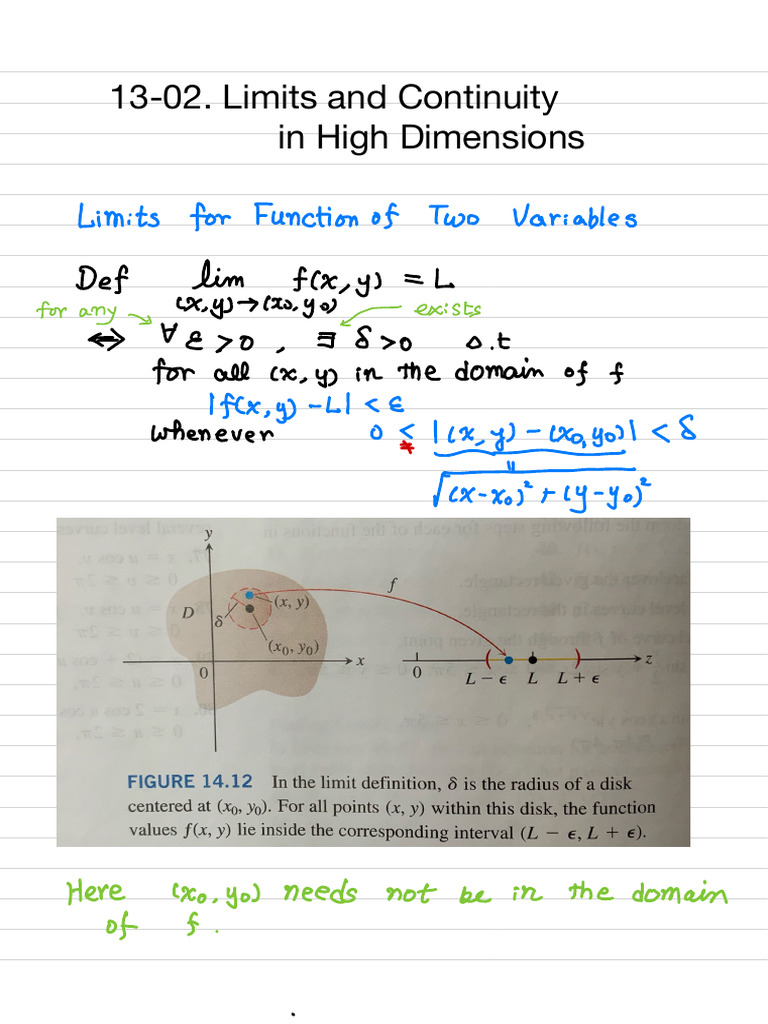 13-02. Limits and Continuity
in High Dimensions
Limits for Function of Two Variables
Def lim f(x,y) = L
(x,y)→(x0,y0)
for any
exists
⟺ ∀ ε > 0 , ∃ δ > 0 s.t
for all (x,y) in the domain of f
|f(x,y) - L| < ε
whenever 0 < |(x,y) - (x0,y0)| < δ
*
"
√(x-x0)² + (y-y0)²
y
f
(x, y)
D
δ
(x₀, y₀)
x
z
0
0
L − ϵ L L + ϵ
FIGURE 14.12 In the limit definition, δ is the radius of a disk
centered at (x₀, y₀). For all points (x, y) within this disk, the function
values f(x, y) lie inside the corresponding interval (L − ϵ, L + ϵ).
Here (x0,y0) needs not be in the domain
of f.